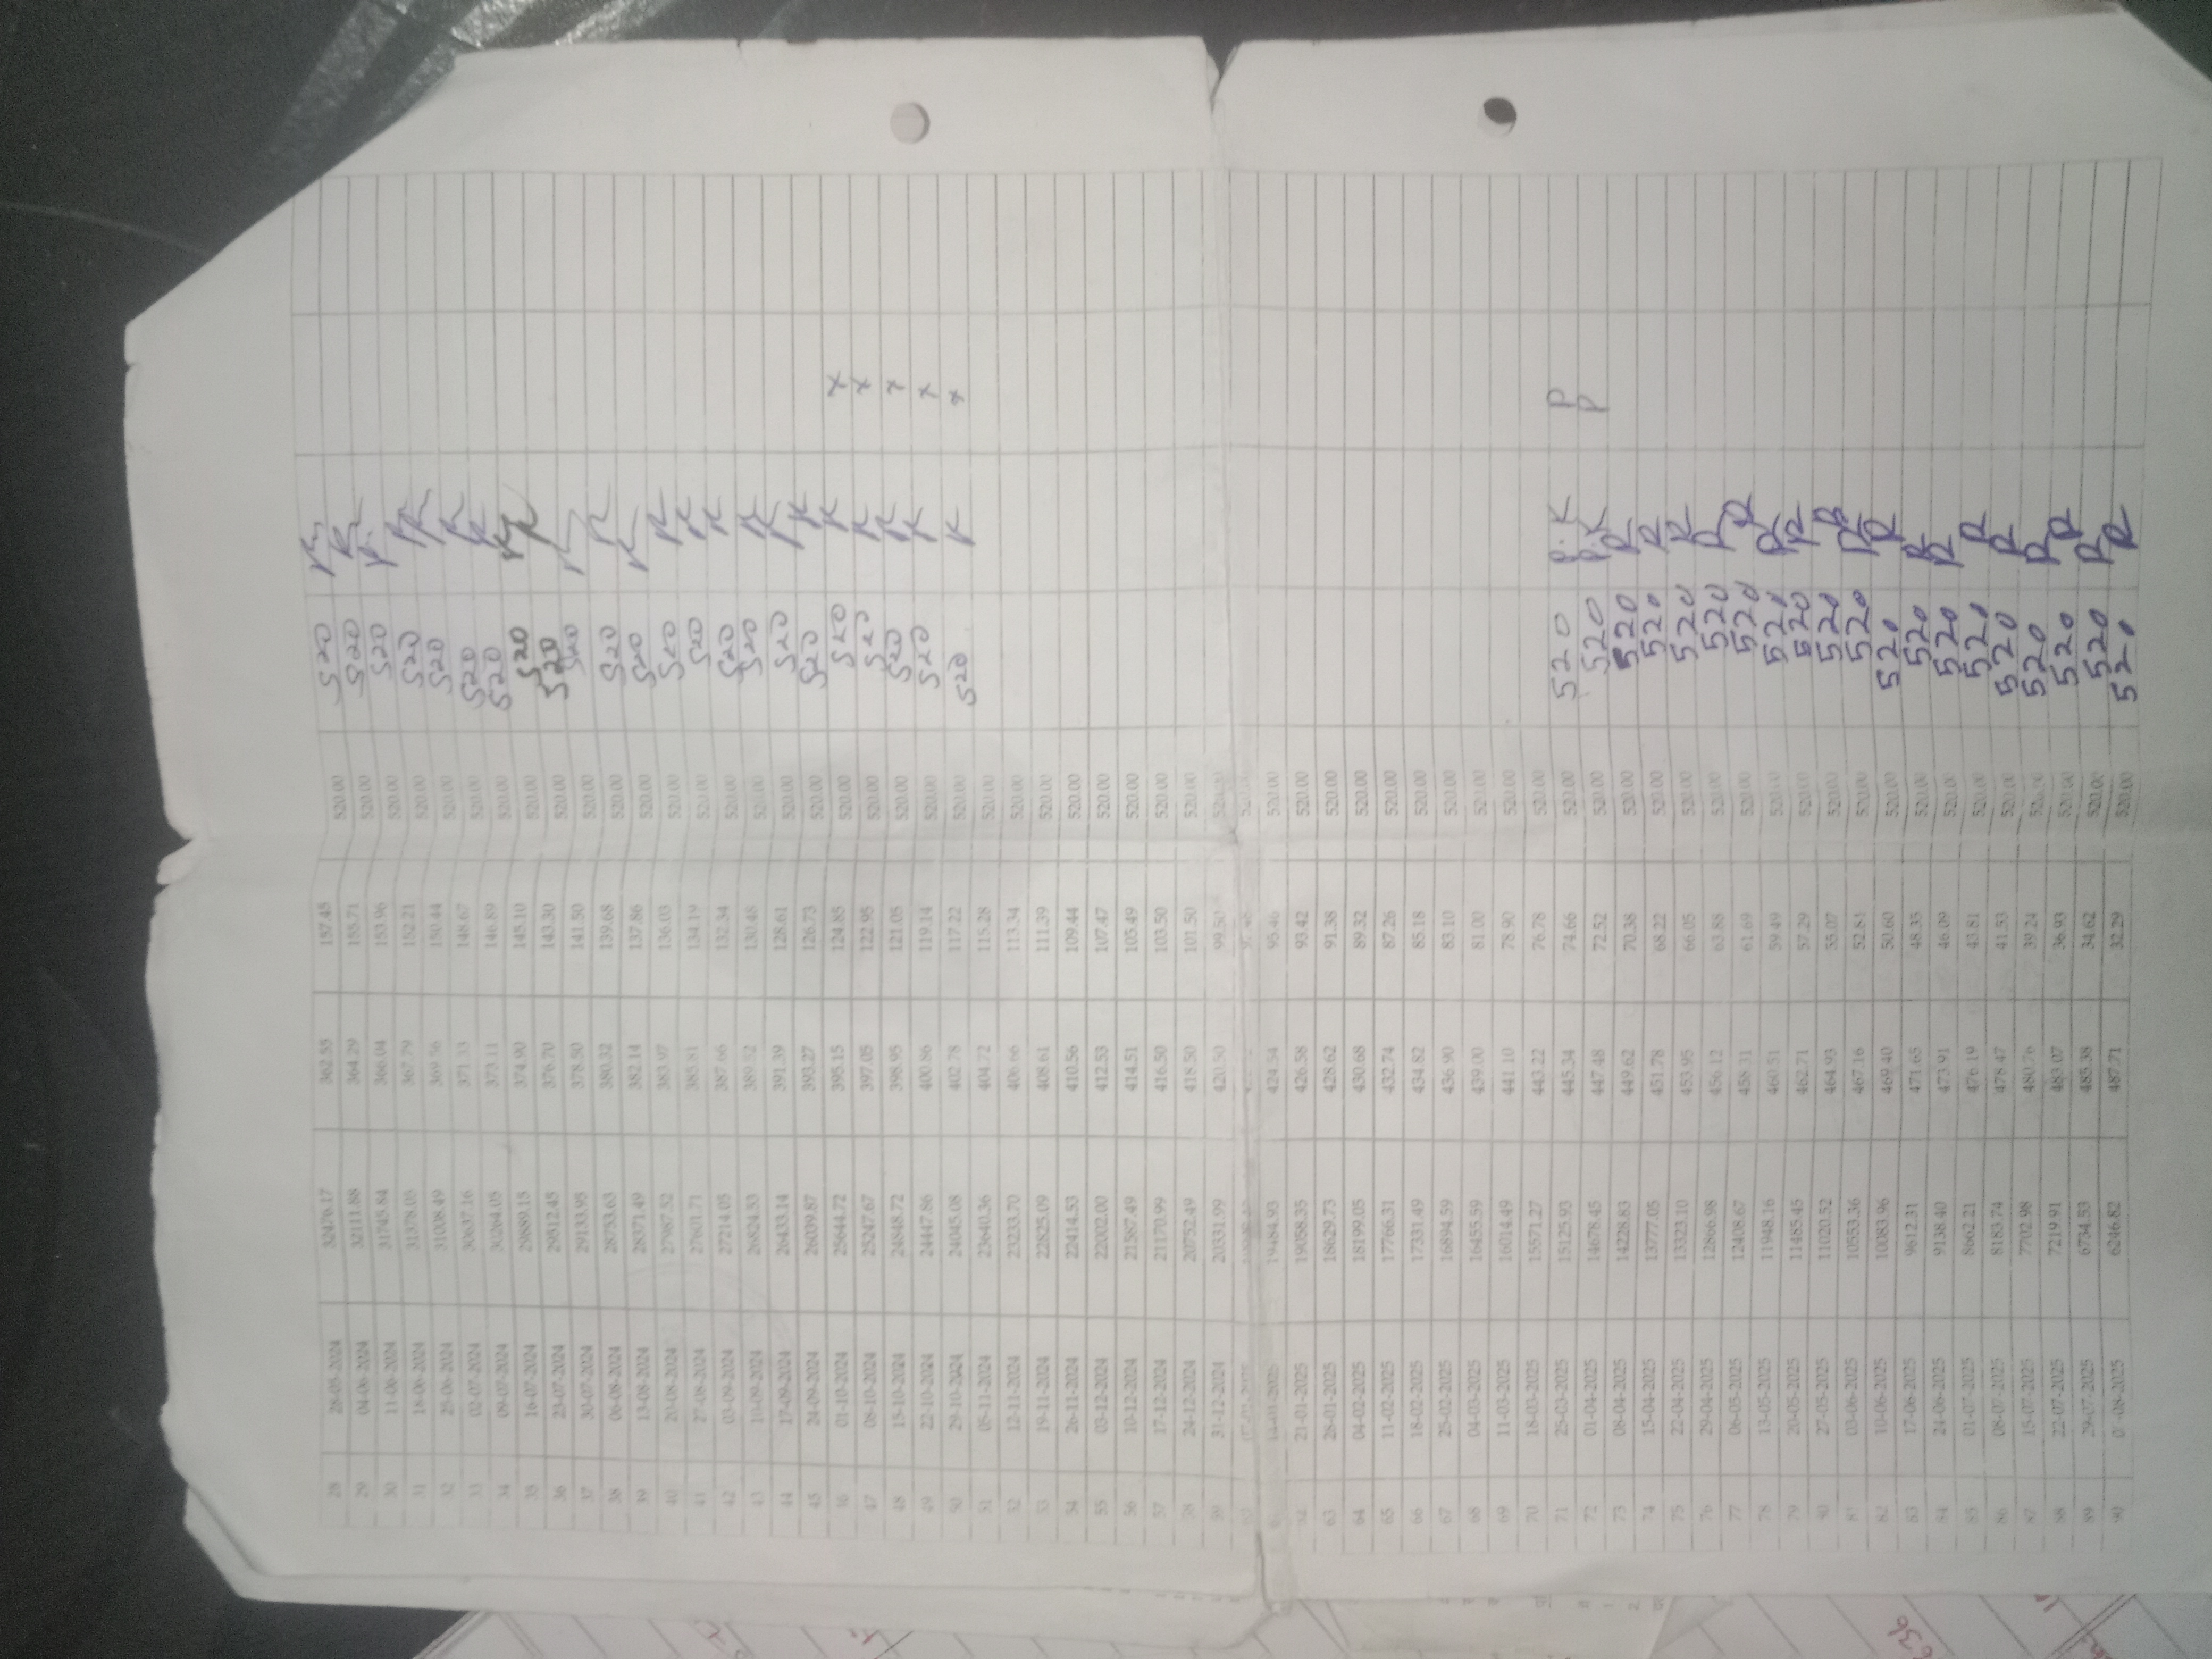 28 28-05-2024 32476.17 362.55 157.45 520.00 520
29 04-06-2024 32111.88 364.29 155.71 520.00 520
30 11-06-2024 31745.84 366.04 153.96 520.00 520
31 18-06-2024 31378.05 367.79 152.21 520.00 520
32 25-06-2024 31008.49 369.56 150.44 520.00 520
33 02-07-2024 30637.16 371.33 148.67 520.00 520
34 09-07-2024 30264.05 373.11 146.89 520.00 520
35 16-07-2024 29889.15 374.90 145.10 520.00 520
36 23-07-2024 29512.45 376.70 143.30 520.00 520
37 30-07-2024 29133.95 378.50 141.50 520.00 520
38 06-08-2024 28753.63 380.32 139.68 520.00 520
39 13-08-2024 28371.49 382.14 137.86 520.00 520
40 20-08-2024 27987.52 383.97 136.03 520.00 520
41 27-08-2024 27601.71 385.81 134.19 520.00 520
42 03-09-2024 27214.05 387.66 132.34 520.00 520
43 10-09-2024 26824.53 389.52 130.48 520.00 520
44 17-09-2024 26433.14 391.39 128.61 520.00 520
45 24-09-2024 26039.87 393.27 126.73 520.00 520
46 01-10-2024 25644.72 395.15 124.85 520.00 520 x
47 08-10-2024 25247.67 397.05 122.95 520.00 520 x
48 15-10-2024 24848.72 398.95 121.05 520.00 520 x
49 22-10-2024 24447.86 400.86 119.14 520.00 520 x
50 29-10-2024 24045.08 402.78 117.22 520.00 520 x
51 05-11-2024 23640.36 404.72 115.28 520.00
52 12-11-2024 23233.70 406.66 113.34 520.00
53 19-11-2024 22825.09 408.61 111.39 520.00
54 26-11-2024 22414.53 410.56 109.44 520.00
55 03-12-2024 22002.00 412.53 107.47 520.00
56 10-12-2024 21587.49 414.51 105.49 520.00
57 17-12-2024 21170.99 416.50 103.50 520.00
58 24-12-2024 20752.49 418.50 101.50 520.00
59 31-12-2024 20331.99 420.50 99.50 520.00
14-01-2025 19484.93 424.54 95.46 520.00
62 21-01-2025 19058.35 426.58 93.42 520.00
63 28-01-2025 18629.73 428.62 91.38 520.00
64 04-02-2025 18199.05 430.68 89.32 520.00
65 11-02-2025 17766.31 432.74 87.26 520.00
66 18-02-2025 17331.49 434.82 85.18 520.00
67 25-02-2025 16894.59 436.90 83.10 520.00
68 04-03-2025 16455.59 439.00 81.00 520.00
69 11-03-2025 16014.49 441.10 78.90 520.00
70 18-03-2025 15571.27 443.22 76.78 520.00
71 25-03-2025 15125.93 445.34 74.66 520.00 520 P
72 01-04-2025 14678.45 447.48 72.52 520.00 520 P
73 08-04-2025 14228.83 449.62 70.38 520.00 520
74 15-04-2025 13777.05 451.78 68.22 520.00 520
75 22-04-2025 13323.10 453.95 66.05 520.00 520
76 29-04-2025 12866.98 456.12 63.88 520.00 520
77 06-05-2025 12408.67 458.31 61.69 520.00 520
78 13-05-2025 11948.16 460.51 59.49 520.00 520
79 20-05-2025 11485.45 462.71 57.29 520.00 520
80 27-05-2025 11020.52 464.93 55.07 520.00 520
81 03-06-2025 10553.36 467.16 52.84 520.00 520
82 10-06-2025 10083.96 469.40 50.60 520.00 520
83 17-06-2025 9612.31 471.65 48.35 520.00 520
84 24-06-2025 9138.40 473.91 46.09 520.00 520
85 01-07-2025 8662.21 476.19 43.81 520.00 520
86 08-07-2025 8183.74 478.47 41.53 520.00 520
87 15-07-2025 7702.98 480.76 39.24 520.00 520
88 22-07-2025 7219.91 483.07 36.93 520.00 520
89 29-07-2025 6734.53 485.38 34.62 520.00 520
90 6246.82 487.71 32.29 520.00 520
636